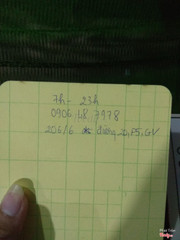 7h - 23h
0906 68 7978
206/6 đường 20, P5, GV